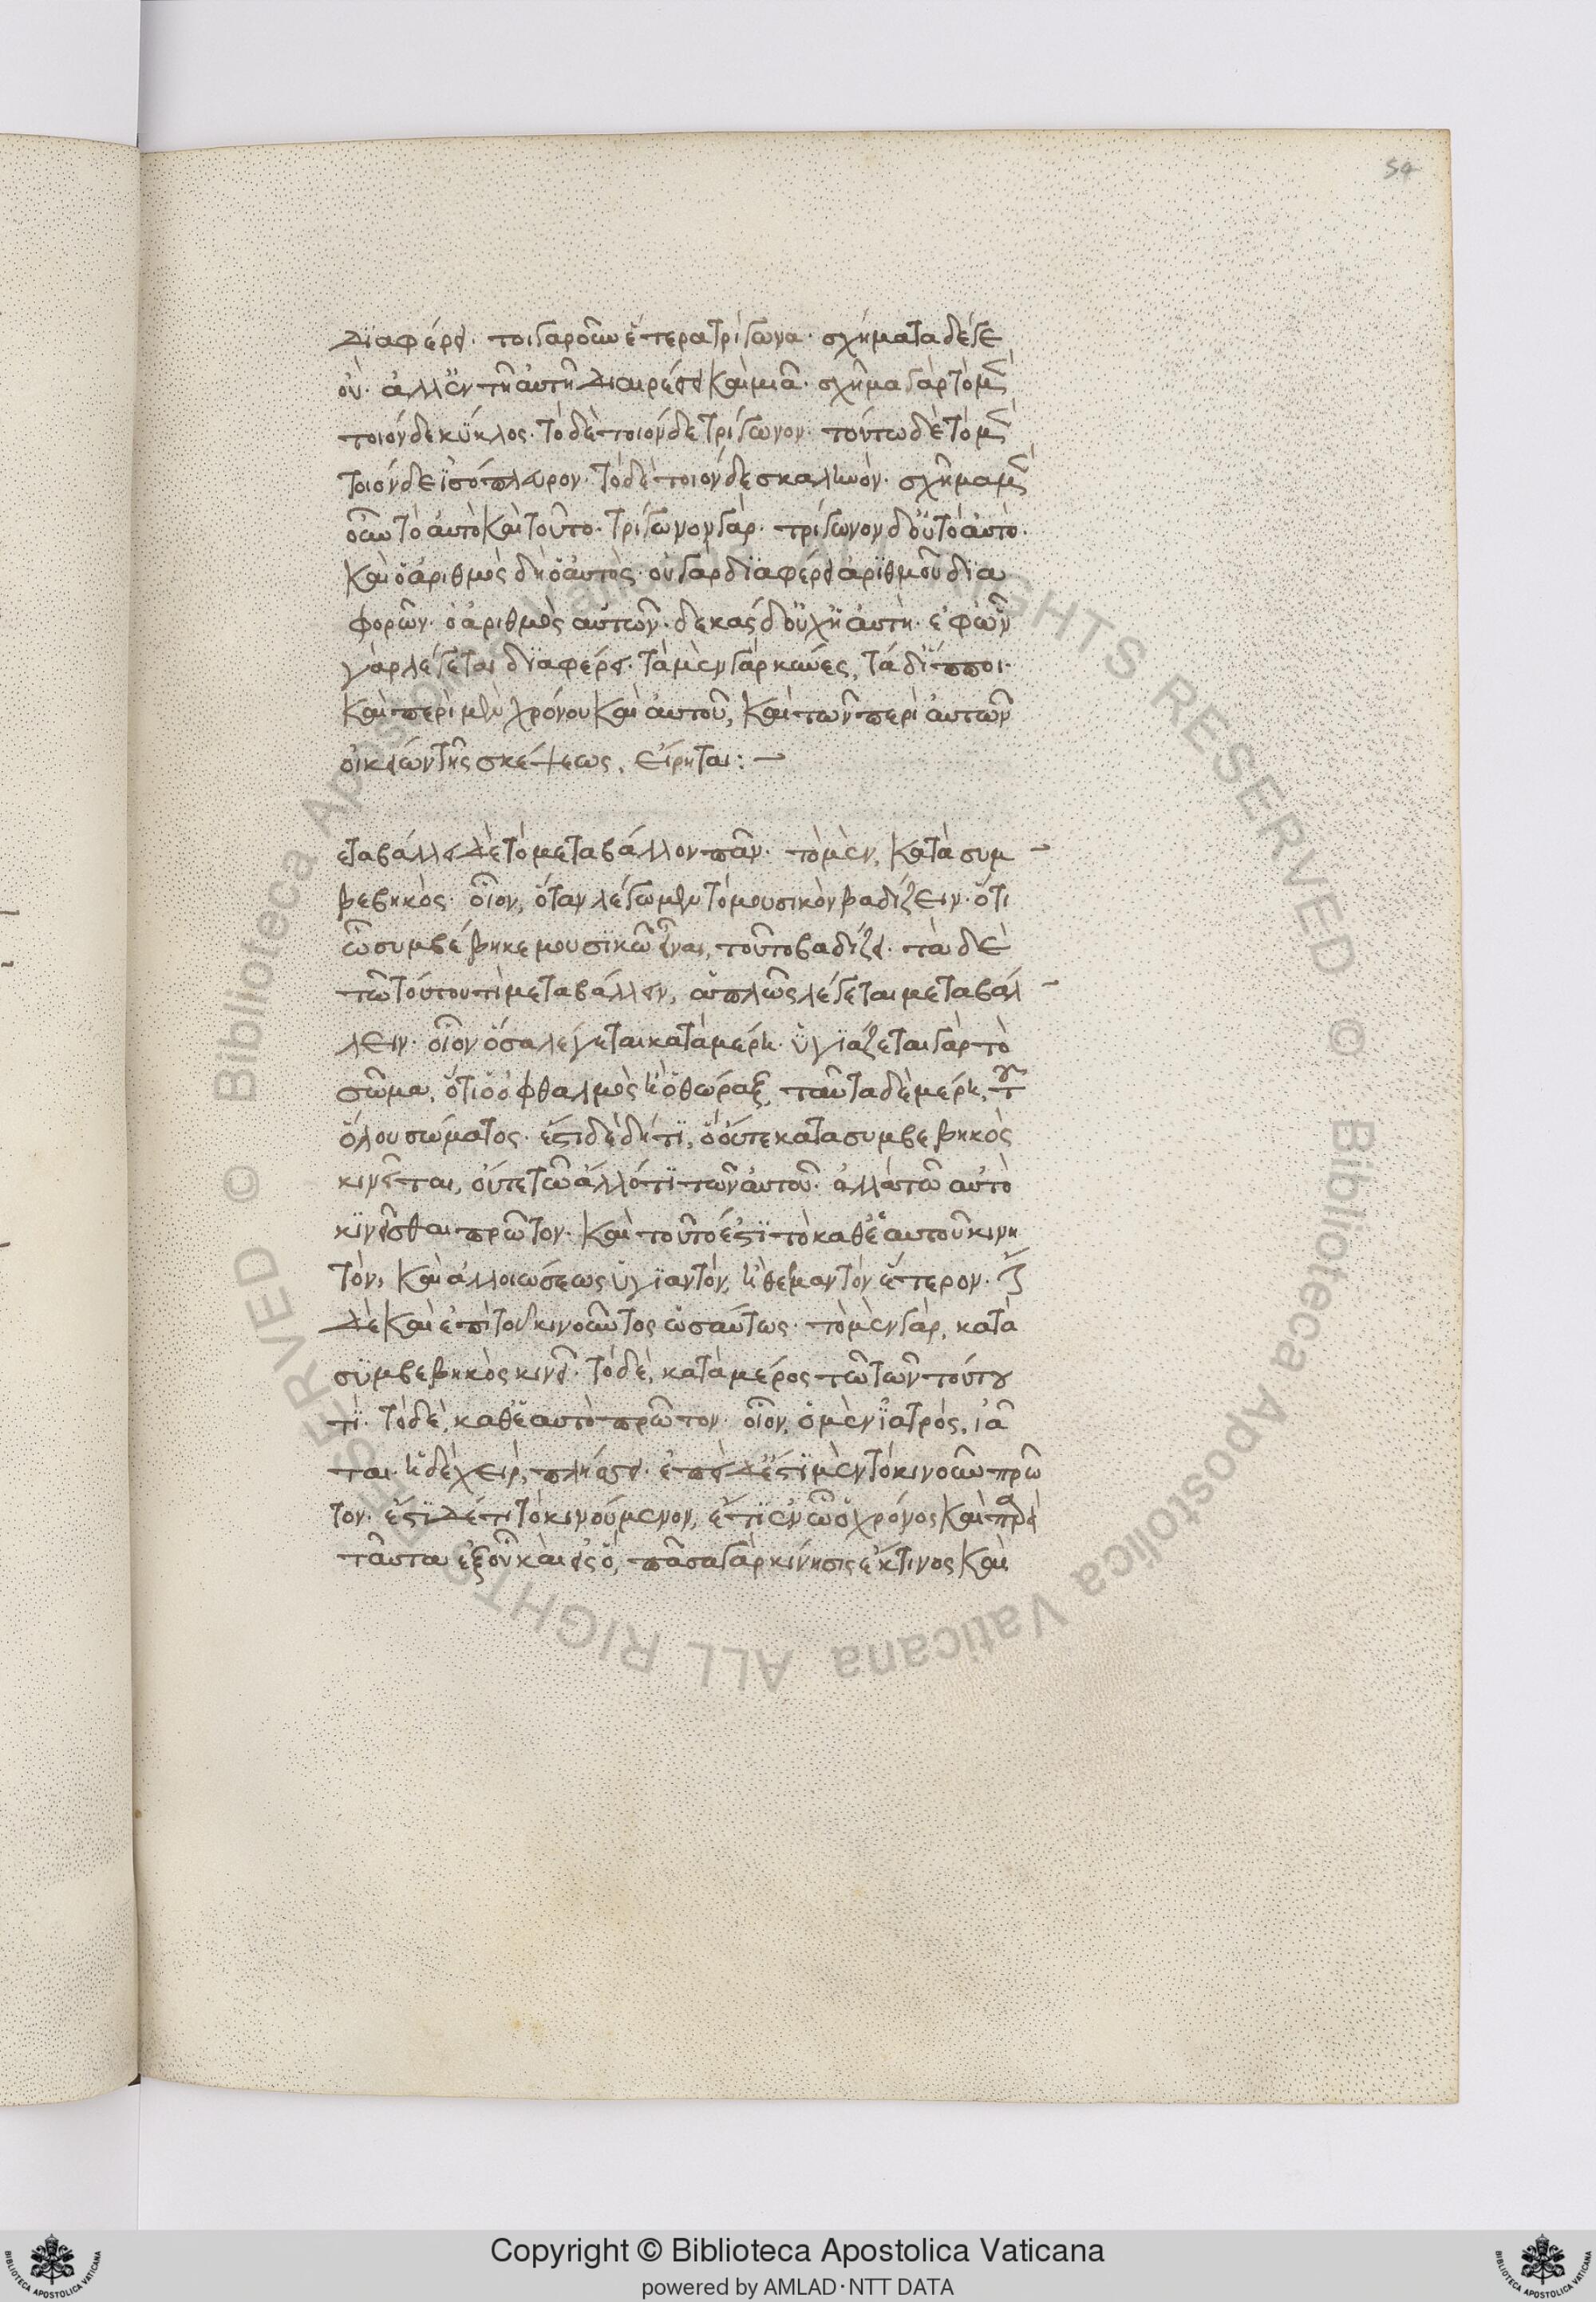 54
διαφέρει· τοιγαροῦν ἕτερα τρίγωνα· σχήματα δέ γε
οὔ· ἀλλ' ἐν τῇ αὐτῇ διαιρέσει καὶ μιᾷ· σχῆμα γὰρ τὸ μὲν
τοιόνδε κύκλος· τὸ δὲ τοιόνδε τρίγωνον· τούτω δὲ τὸ μὲν
τοιόνδε ἰσόπλευρον· τὸ δὲ τοιόνδε σκαληνόν· σχῆμα μὲν
οὖν τὸ αὐτὸ καὶ τοῦτο· τρίγωνον γάρ· τρίγωνον δ' οὐ τὸ αὐτό·
καὶ ὁ ἀριθμὸς δὴ ὁ αὐτός· οὐ γὰρ διαφέρει ἀριθμοῦ δια
φορῶν· ὁ ἀριθμὸς αὐτῶν· δεκὰς δ' οὐχ ἡ αὐτή· ἐφ' ὧν
γὰρ λέγεται διαφέρει· τὰ μὲν γὰρ κύνες, τὰ δ' ἵπποι·
καὶ περὶ μὲν χρόνου καὶ αὐτοῦ, καὶ τῶν περὶ αὐτῶν
οἰκείων τῆς σκέψεως, εἴρηται:
εταβάλλει δὲ τὸ μεταβάλλον πᾶν· τὸ μὲν, κατὰ συμ
βεβηκός· οἷον, ὅταν λέγωμεν τὸ μουσικὸν βαδίζειν· ὅτι
ᾧ συμβέβηκε μουσικῷ εἶναι, τοῦτο βαδίζει· τὰ δὲ
τῷ τούτου τι μεταβάλλειν, ἁπλῶς λέγεται μεταβάλ
λειν· οἷον ὅσα λέγηται κατὰ μέρη· ὑγιάζεται γὰρ τὸ
σῶμα, ὅτι ὁ ὀφθαλμὸς ἢ ὁ θώραξ, ταῦτα δὲ μέρη, τοῦ
ὅλου σώματος· ἔστι δὲ δή τι, ὃ οὔτε κατα συμβεβηκὸς
κινεῖται, οὔτε τῷ ἄλλό τι τῶν αὐτοῦ· ἀλλὰ τῷ αὐτὸ
κινεῖσθαι πρῶτον· καὶ τοῦτό ἐστι τὸ καθ' ἑαυτοῦ κινη
τόν, καὶ ἀλλοιώσεως ὑγιαντόν, ἢ θερμαντόν ἕτερον· ἔστι
δὲ καὶ ἐπὶ τοῦ κινοῦντος ὡσαύτως· τὸ μὲν γὰρ, κατὰ
συμβεβηκὸς κινεῖ· τὸ δὲ, κατὰ μέρος τῷ τῶν τούτου
τι· τὸ δὲ, καθ' ἑαυτὸ πρῶτον· οἷον, ὁ μὲν ἰατρός, ἰᾶ
ται· ἡ δὲ χείρ, πλήσσει· ἐπεὶ δ' ἔστι μὲν τὸ κινοῦν πρῶ
τον· ἔστι δέ τι τὸ κινούμενον, ἔτι ἐν ᾧ ὁ χρόνος καὶ παρὰ
ταῦτα ἐξ οὗ καὶ εἰς ὅ, πᾶσα γὰρ κίνησις ἔκ τινος καὶ
Copyright © Biblioteca Apostolica Vaticana
powered by AMLAD·NTT DATA